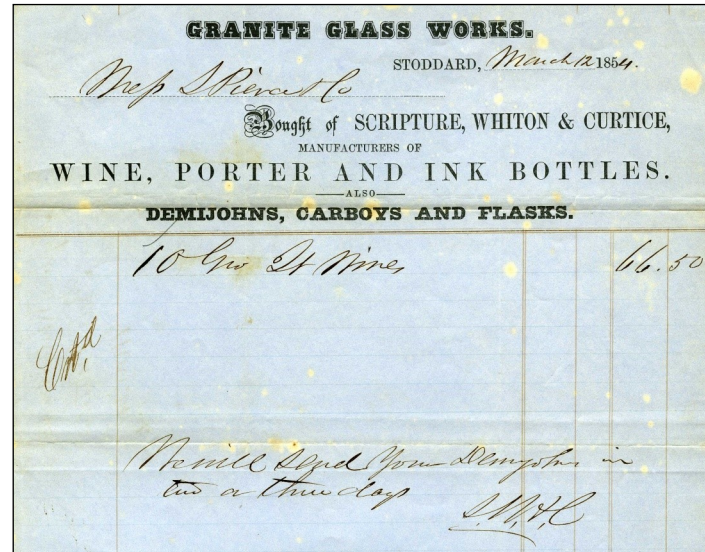 GRANITE GLASS WORKS.
STODDARD, March 12 1854.
Mess S Pierce & Co
Bought of SCRIPTURE, WHITON & CURTICE,
MANUFACTURERS OF
WINE, PORTER AND INK BOTTLES.
ALSO
DEMIJOHNS, CARBOYS AND FLASKS.
10 Gro Qt Wines 66.50
We will send your Demijohns in
two or three days
S. W. & C